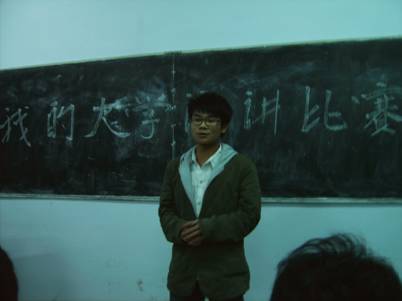 我的大学 讲比赛